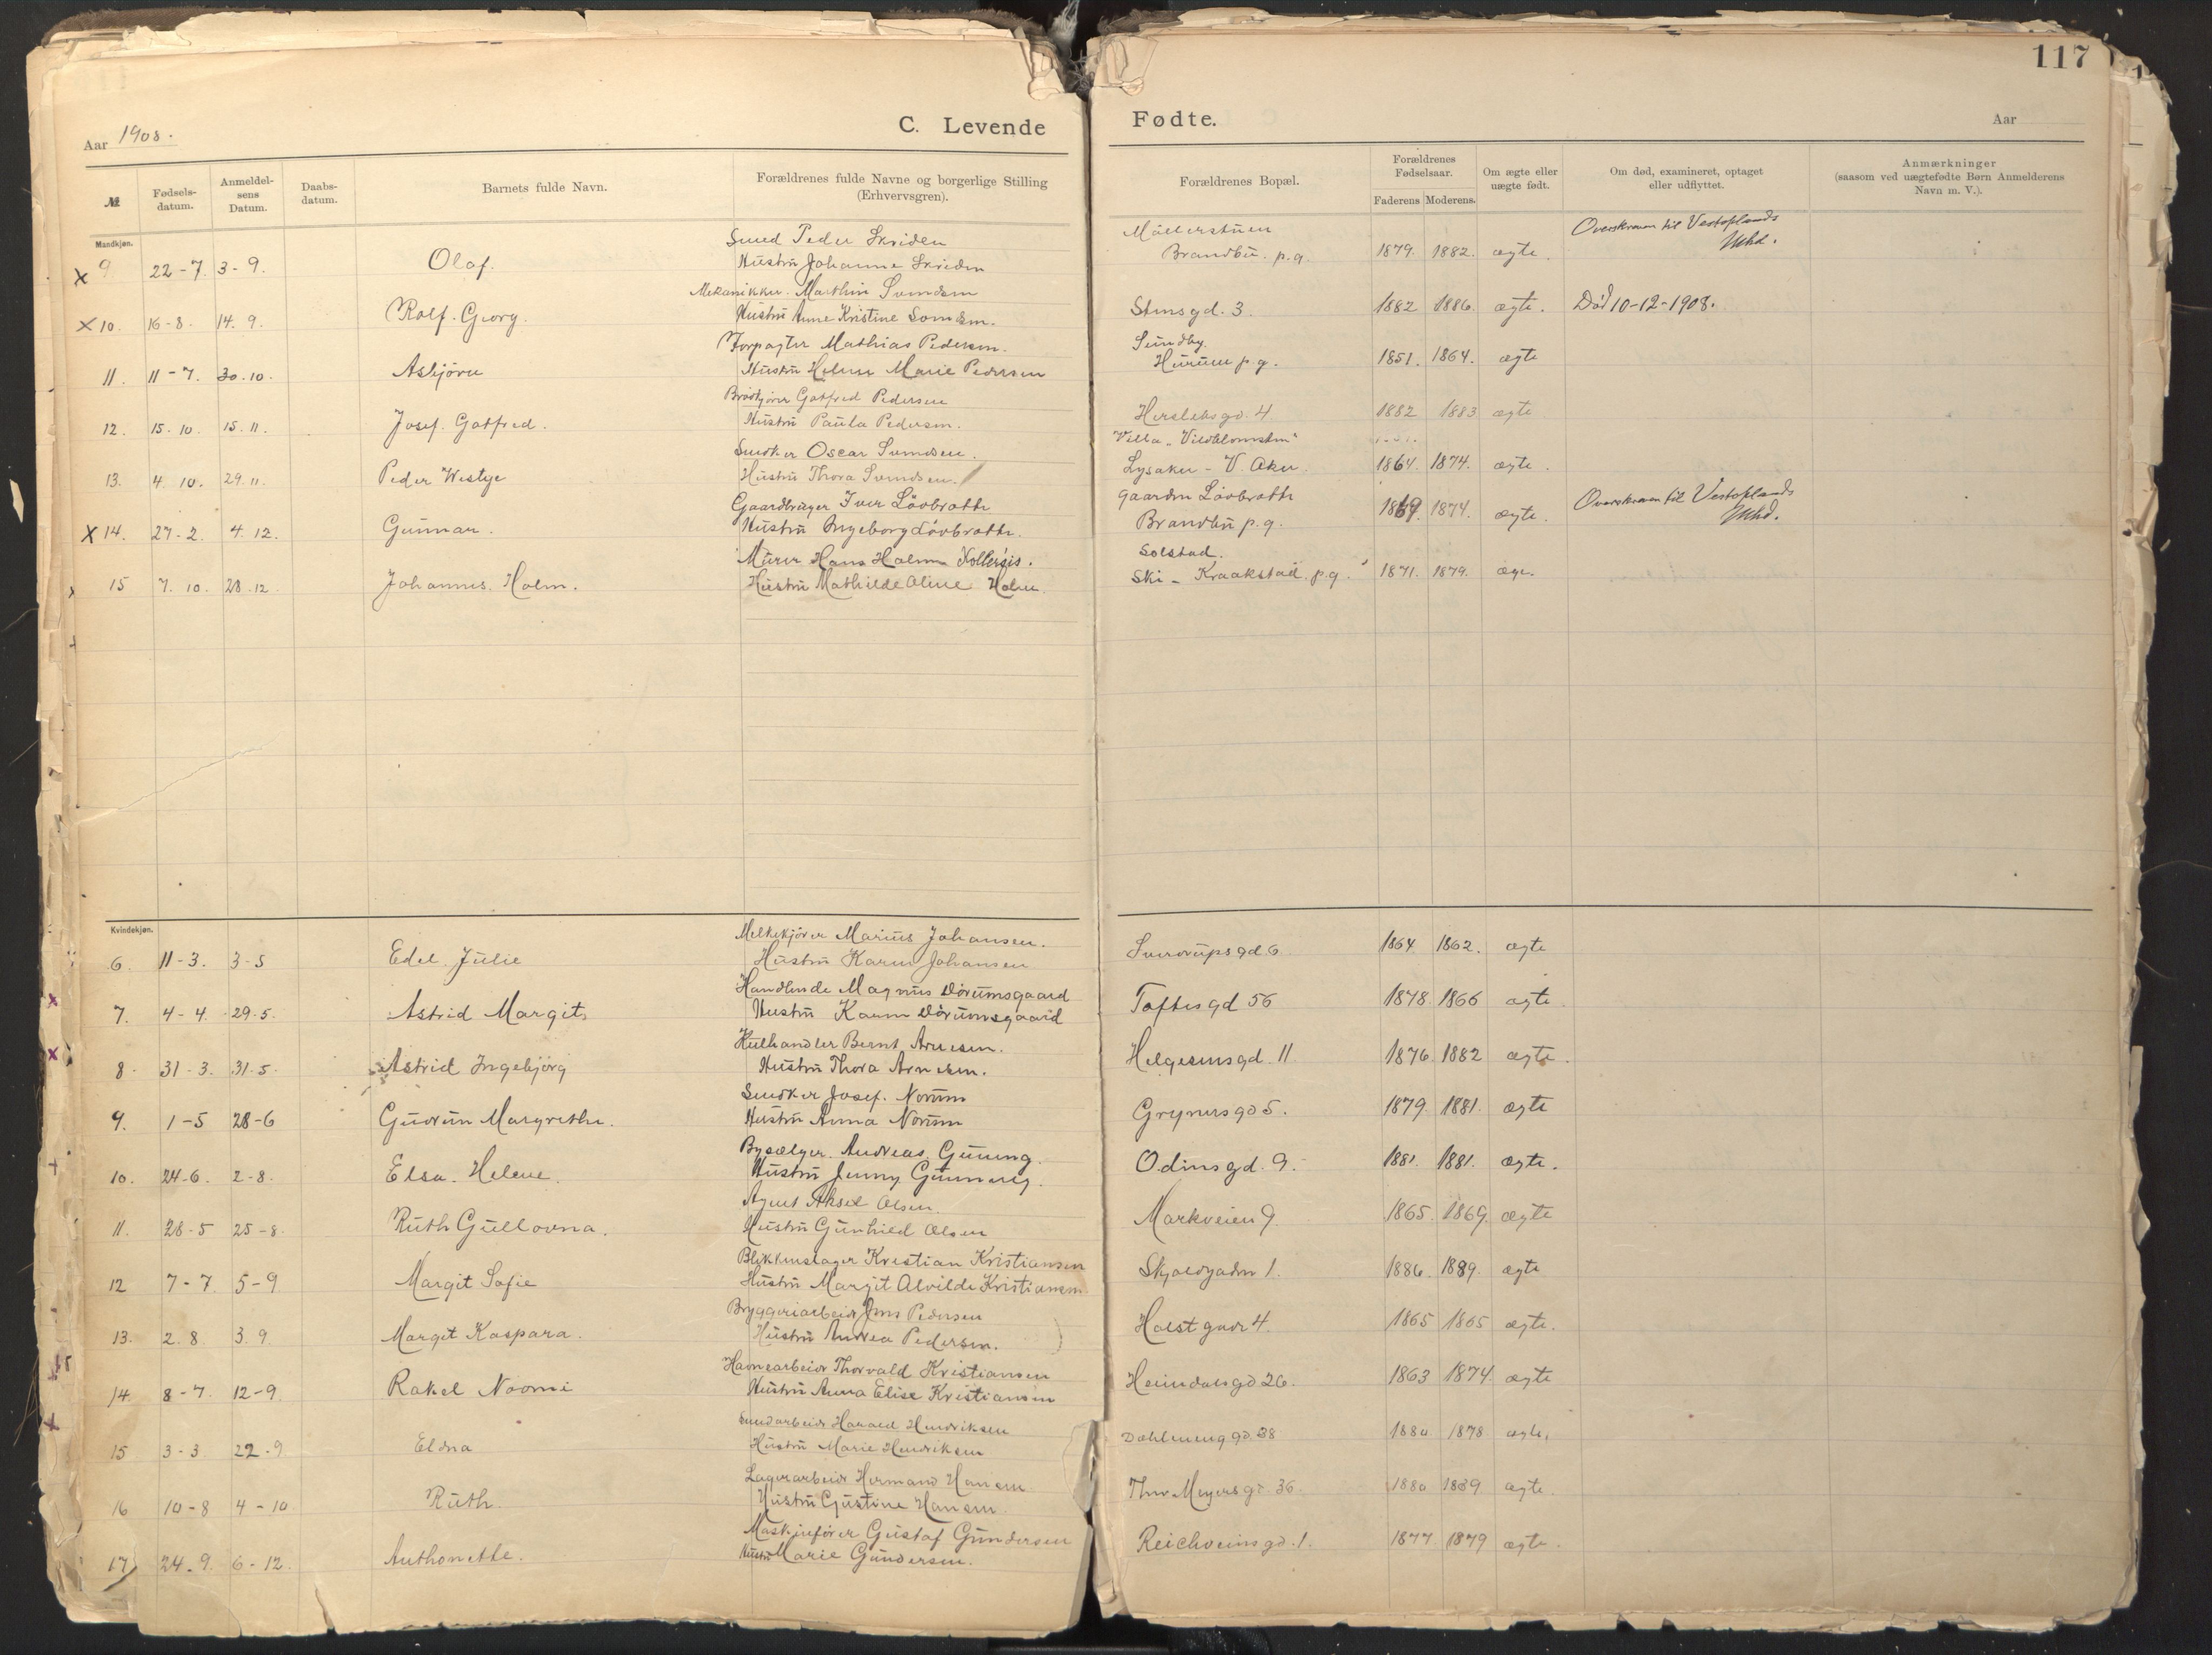 117
Aar 1908.
C. Levende Fødte.
Aar
№
Fødsels-datum.
Anmeldel-sens Datum.
Daabs-datum.
Barnets fulde Navn.
Forældrenes fulde Navne og borgerlige Stilling (Erhvervsgren).
Forældrenes Bopæl.
Forældrenes Fødselsaar.
Faderens Moderens.
Om ægte eller uægte født.
Om død, examineret, optaget eller udflyttet.
Anmærkninger (saasom ved uægtefødte Børn Anmelderens Navn m. V.).
Mandkjøn.
Smed Peder Skriden Möllerstuen Overskreven til Vestoplands
x 9 22-7 3-9. Olaf. Hustru Johanne Skriden Brandbu p.g. 1879. 1882. ægte. Mhd.
Mekaniker Marthin Svendsen
x 10. 16-8. 14. 9. Rolf. Georg. Hustru Anne Kristine Svendsen. Stensgd. 3. 1882 1886. ægte. Död 10-12-1908.
Forpagter Mathias Pedersen. Sundby.
11. 11-7. 30.10. Asbjörn Hustru Helene Marie Pedersen Hurum p.g. 1851. 1864. ægte
Brödkjörer Gotfred Pedersen
12. 15.10. 15.11. Josef. Gotfred. Hustru Paula Pedersen. Herslebsgd. 4 1882 1883 ægte
Snedker Oscar Svendsen. Villa "Vildblomsten"
13. 4. 10. 29.11. Peder Westye Hustru Thora Svendsen. Lysaker - V. Aker. 1864. 1874. ægte.
Gaardbruger Iver Lövbrøtte Gaarden Lövbrotte Overskreven til Vestoplands
x 14. 27-2. 4. 12. Gunnar. Hustru Ingeborg Lövbrotte. Brandbu p.g. 1869. 1874. ægte. Mhd.
Murer Hans Holm Solstad.
15 7. 10. 28.12. Johannes. Holm. Hustru Mathilde Oline Holm. Ski - Kraakstad p.g. 1871. 1879. ægte.
Kvindekjøn.
Melkekjörer Marius Johansen.
6. 11-3. 3-5 Edel. Julie Hustru Karen Johansen Sverdrupsgd 6 1864. 1862. ægte
Handlende Magnus Dörumsgaard
7. 4-4. 29-5. Astrid Margit. Hustru Karen Dörumsgaard Toftesgd 56 1878. 1866 ægte
Kulhandler Bernt Arnesen.
8. 31-3. 31-5. Astrid Ingebjörg Hustru Thora Arnesen. Helgesensgd. 11. 1876. 1882 ægte.
Snedker Josef. Norum
9. 1-5 28-6 Gudrun Margrethe. Hustru Anna Norum Grynersgd 5. 1879. 1881. ægte
Bysælger. Andreas. Gunneng.
10. 24-6. 2-8. Elsa. Helene. Hustru Jenny Gunneng. Odinsgd. 9. 1881. 1881. ægte.
Agent Aksel Olsen.
11. 28-5 25-8. Ruth Gullovna. Hustru Gunhild Olsen Markveien 9. 1865. 1869. ægte
Blikkenslager Kristian Kristiansen
12 7-7. 5-9 Margit Sofie Hustru Margit Alvilde Kristiansen Skjoldgaden 1. 1886. 1889. ægte
Bryggeriarbeider Jens Pedersen
13. 2. 8. 3. 9 Margit Kaspara. Hustru Andrea Pedersen. Holstgade 4. 1865 1865 ægte.
Havnearbeider Thorvald Kristiansen
14. 8-7. 12-9. Rakel Noomi Hustru Anna Elise Kristiansen Heimdalsgd 26. 1863 1874. ægte
Harald Hendriksen
15 3-3. 22-9 Eldna Hustru Marie Hendriksen Dahlmenggd. 38 1880 1878 ægte.
Lagerarbeider Hermand Hansen
16 10-8 4-10. Ruth. Hustru Gustine Hansen. Thv. Meyersgd. 36. 1880 1889 ægte.
Maskinförer Gustaf Gundersen
17 24-9. 6-12. Anthonette. Hustru Marie Gundersen. Reichveinsgd. 1. 1877 1879 ægte.